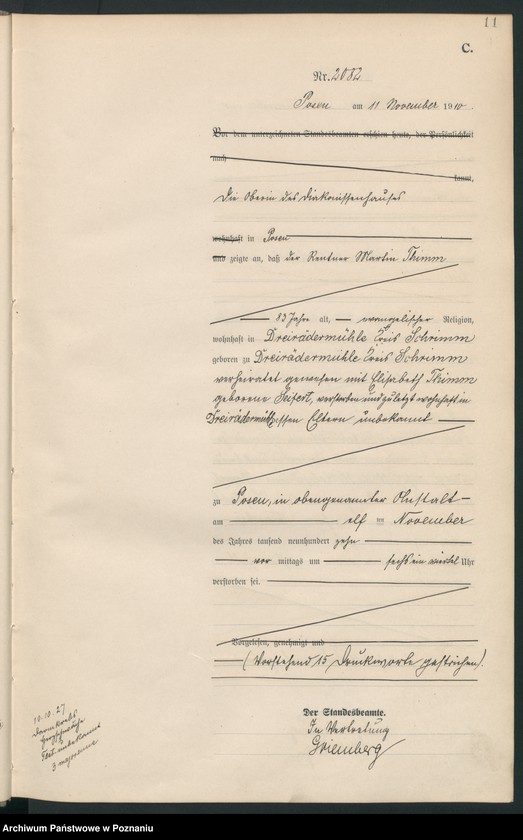 11
C.
Nr. 2082
Posen am 11 November 1910.
Vor dem unterzeichneten Standesbeamten erschien heute, der Persönlichkeit
nach
kannt,
die Oberin des Diakonissenhauses
wohnhaft in Posen
und zeigte an, daß der Rentner Martin Thimm
83 Jahre alt, evangelischer Religion,
wohnhaft in Dreirädermühle Kreis Schrimm
geboren zu Dreirädermühle Kreis Schrimm
verheiratet gewesen mit Elisabeth Thimm
geborene Seifert, verstorben und zuletzt wohnhaft in
Dreirädermühle, dessen Eltern unbekannt
zu Posen, in obengenannter Anstalt
am elf ten November
des Jahres tausend neunhundert zehn
vor mittags um sechs ein viertel Uhr
verstorben sei.
Vorgelesen, genehmigt und
(Vorstehend 15 Druckworte gestrichen).
Der Standesbeamte.
In Vertretung
Griemberg
10.10.27
Darmkrebs
unbekannt
3 majorenne
Archiwum Państwowe w Poznaniu